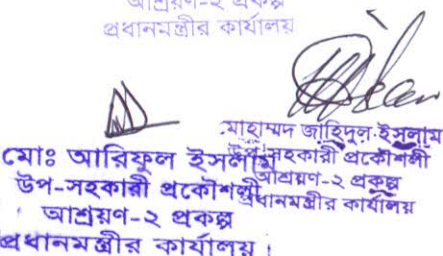 আশ্রয়ণ-২ প্রকল্প
প্রধানমন্ত্রীর কার্যালয়
মোহাম্মদ জাহিদুল ইসলাম
উপ-সহকারী প্রকৌশলী
আশ্রয়ণ-২ প্রকল্প
প্রধানমন্ত্রীর কার্যালয়
মোঃ আরিফুল ইসলাম
উপ-সহকারী প্রকৌশলী
আশ্রয়ণ-২ প্রকল্প
প্রধানমন্ত্রীর কার্যালয়।